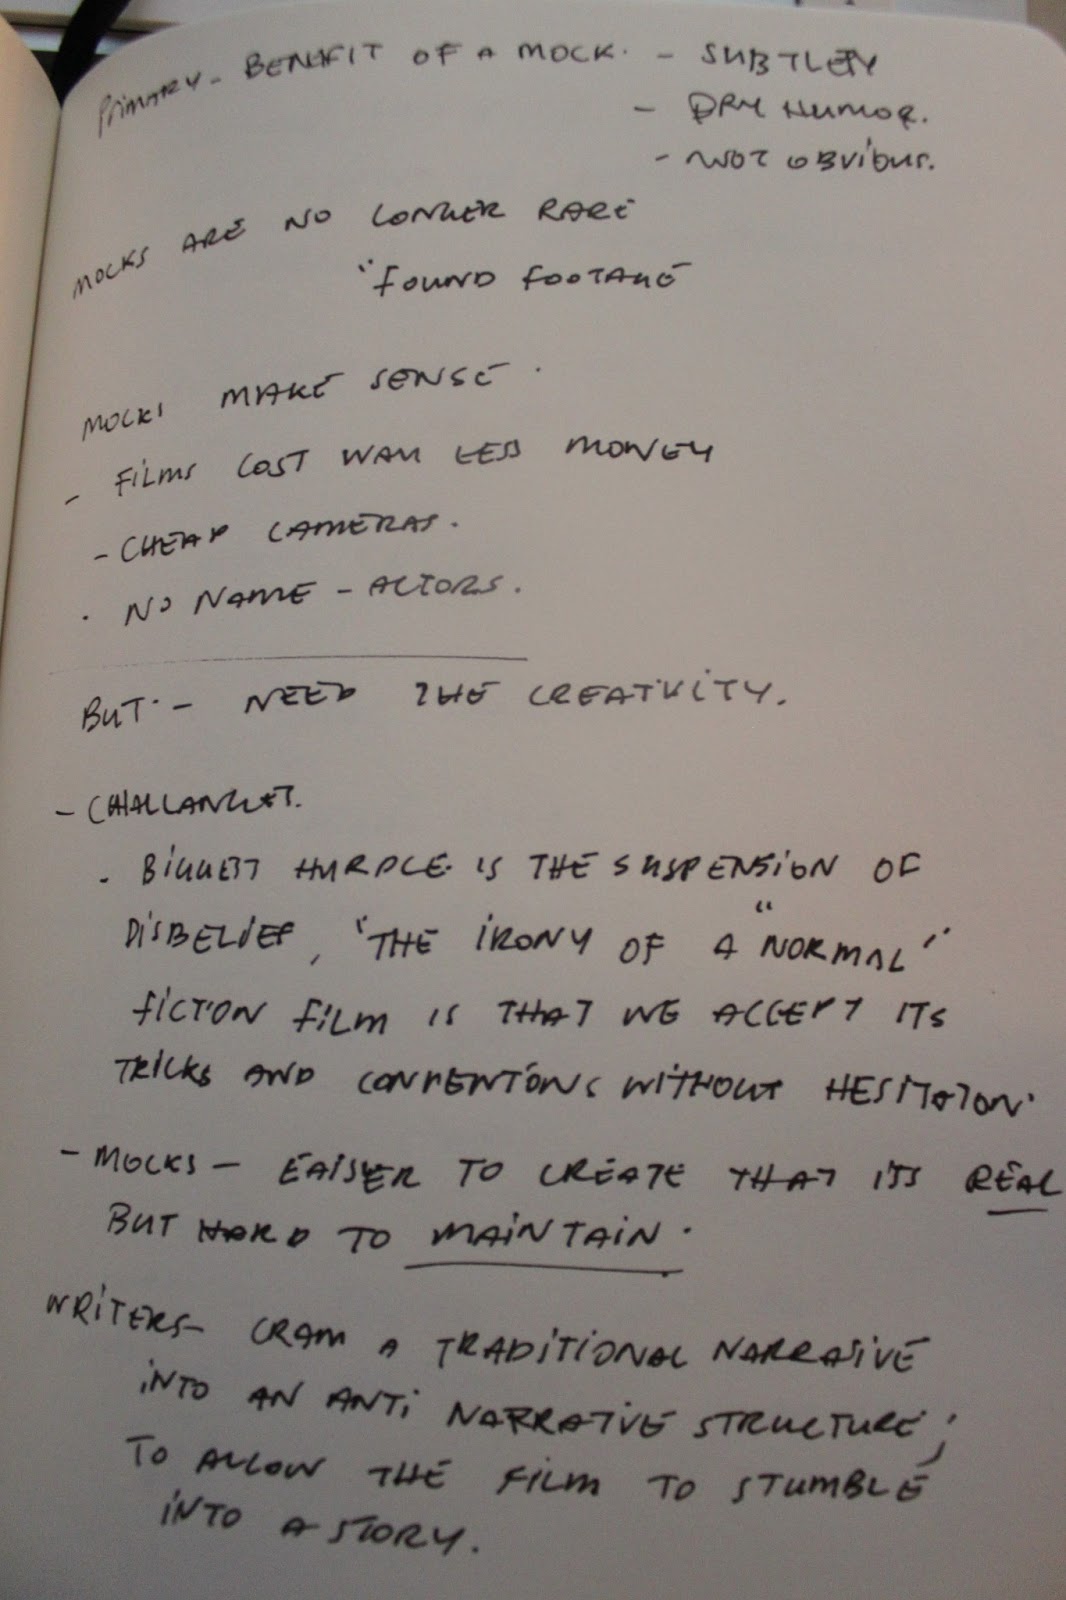 PRIMARY - BENEFIT OF A MOCK. - SUBTLETY
- DRY HUMOR.
- NOT OBVIOUS.
MOCKS ARE NO LONGER RARE
"FOUND FOOTAGE
MOCKS MAKE SENSE.
- FILMS COST WAY LESS MONEY
- CHEAP CAMERAS.
. NO NAME - ACTORS.
BUT - NEED THE CREATIVITY.
- CHALLANGES.
. BIGGEST HURDLE IS THE SUSPENSION OF
DISBELIEF, "THE IRONY OF A "NORMAL"
FICTION FILM IS THAT WE ACCEPT ITS
TRICKS AND CONVENTIONS WITHOUT HESITATION.
- MOCKS - EAISER TO CREATE THAT ITS REAL
BUT HARD TO MAINTAIN.
WRITERS - CRAM A TRADITIONAL NARRATIVE
INTO AN ANTI NARRATIVE STRUCTURE,
TO ALLOW THE FILM TO STUMBLE
INTO A STORY.